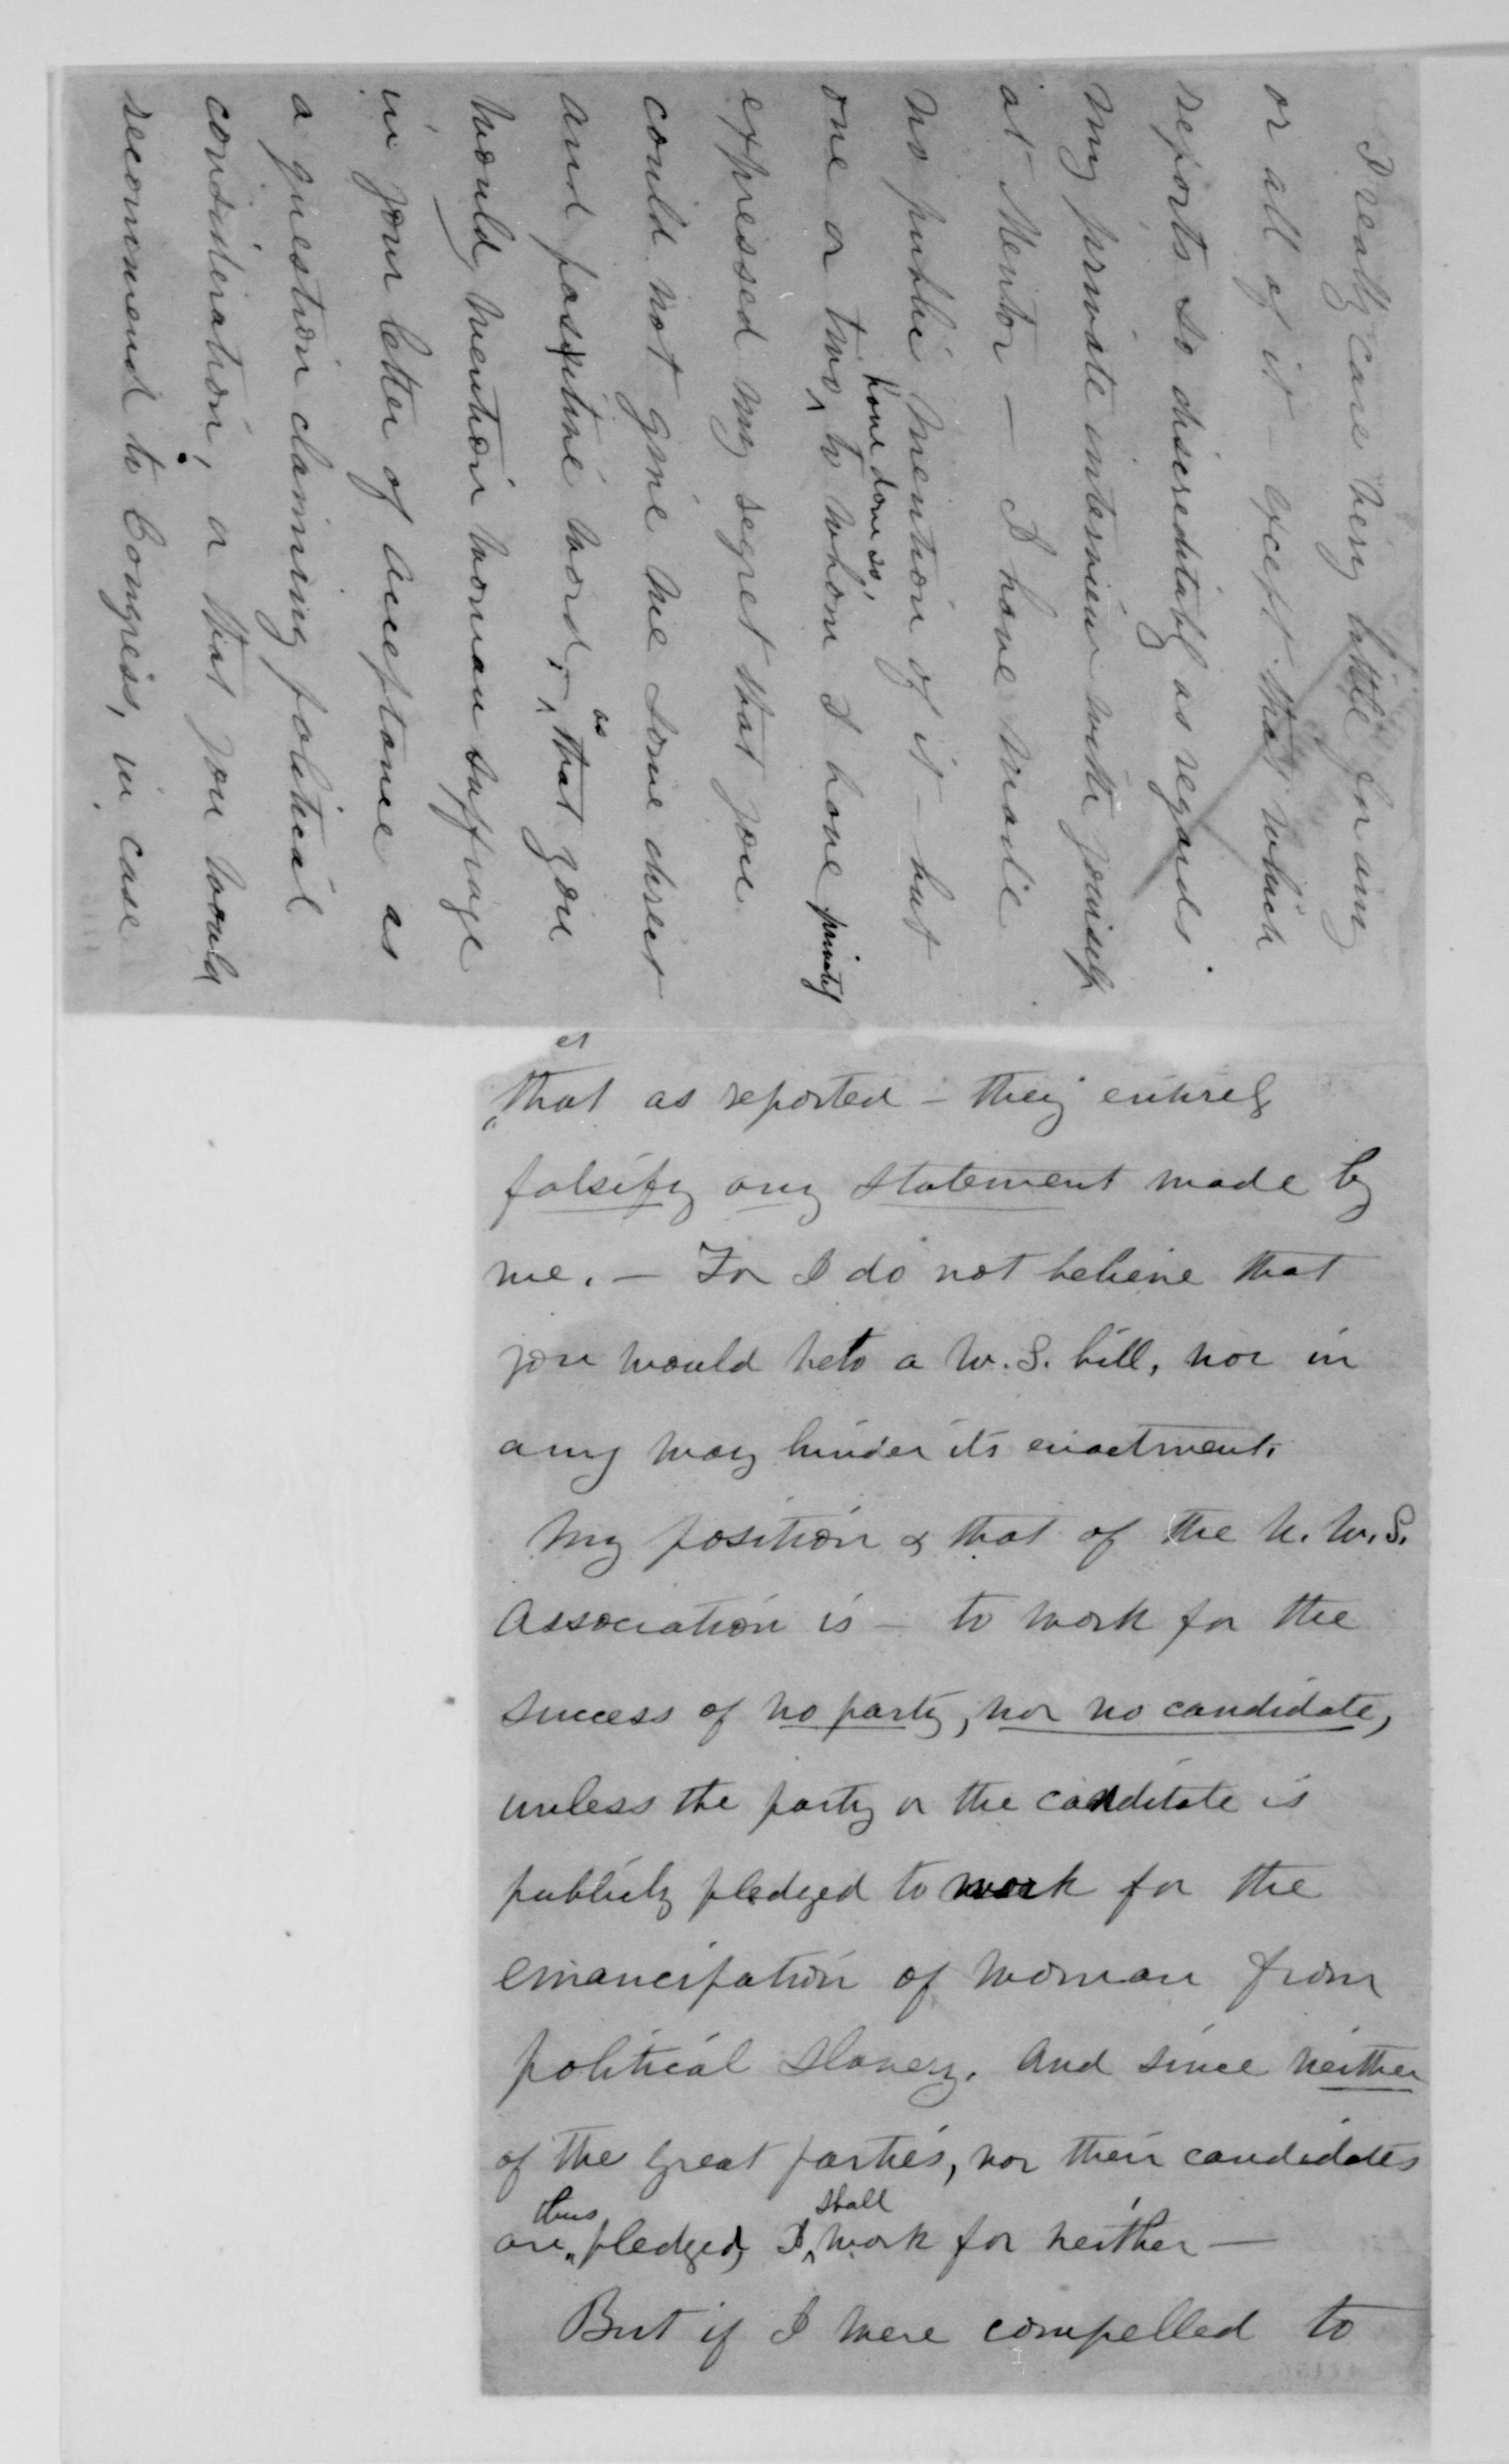 I really care very little for any
or all of it — except that which
reports so discreditably as regards
my private interview with yourself
at Mentor — I have made
no public mention of it — but
have done so,
one or two, to whom I have privately
expressed my regret that you
could not give me some direct
and positive word, — as that you
would mention woman suffrage
in your letter of acceptance as
a question claiming political
consideration, or that you would
recommend to Congress, in case
that as reported — they entirely
falsify any statement made by
me. — For I do not believe that
you would veto a W. S. bill, nor in
any way hinder its enactment.
My position & that of the N. W. S.
Association is — to work for the
success of no party, nor no candidate,
unless the party or the canditate is
publicly pledged to work for the
emancipation of woman from
political slavery. And since neither
of the great parties, nor their candidates
are thus pledged, I shall work for neither —
But if I were compelled to